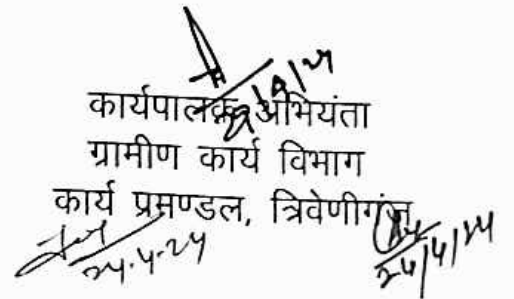 कार्यपालक अभियंता
ग्रामीण कार्य विभाग
कार्य प्रमण्डल, त्रिवेणीगंज
24.4.24
24/4/24